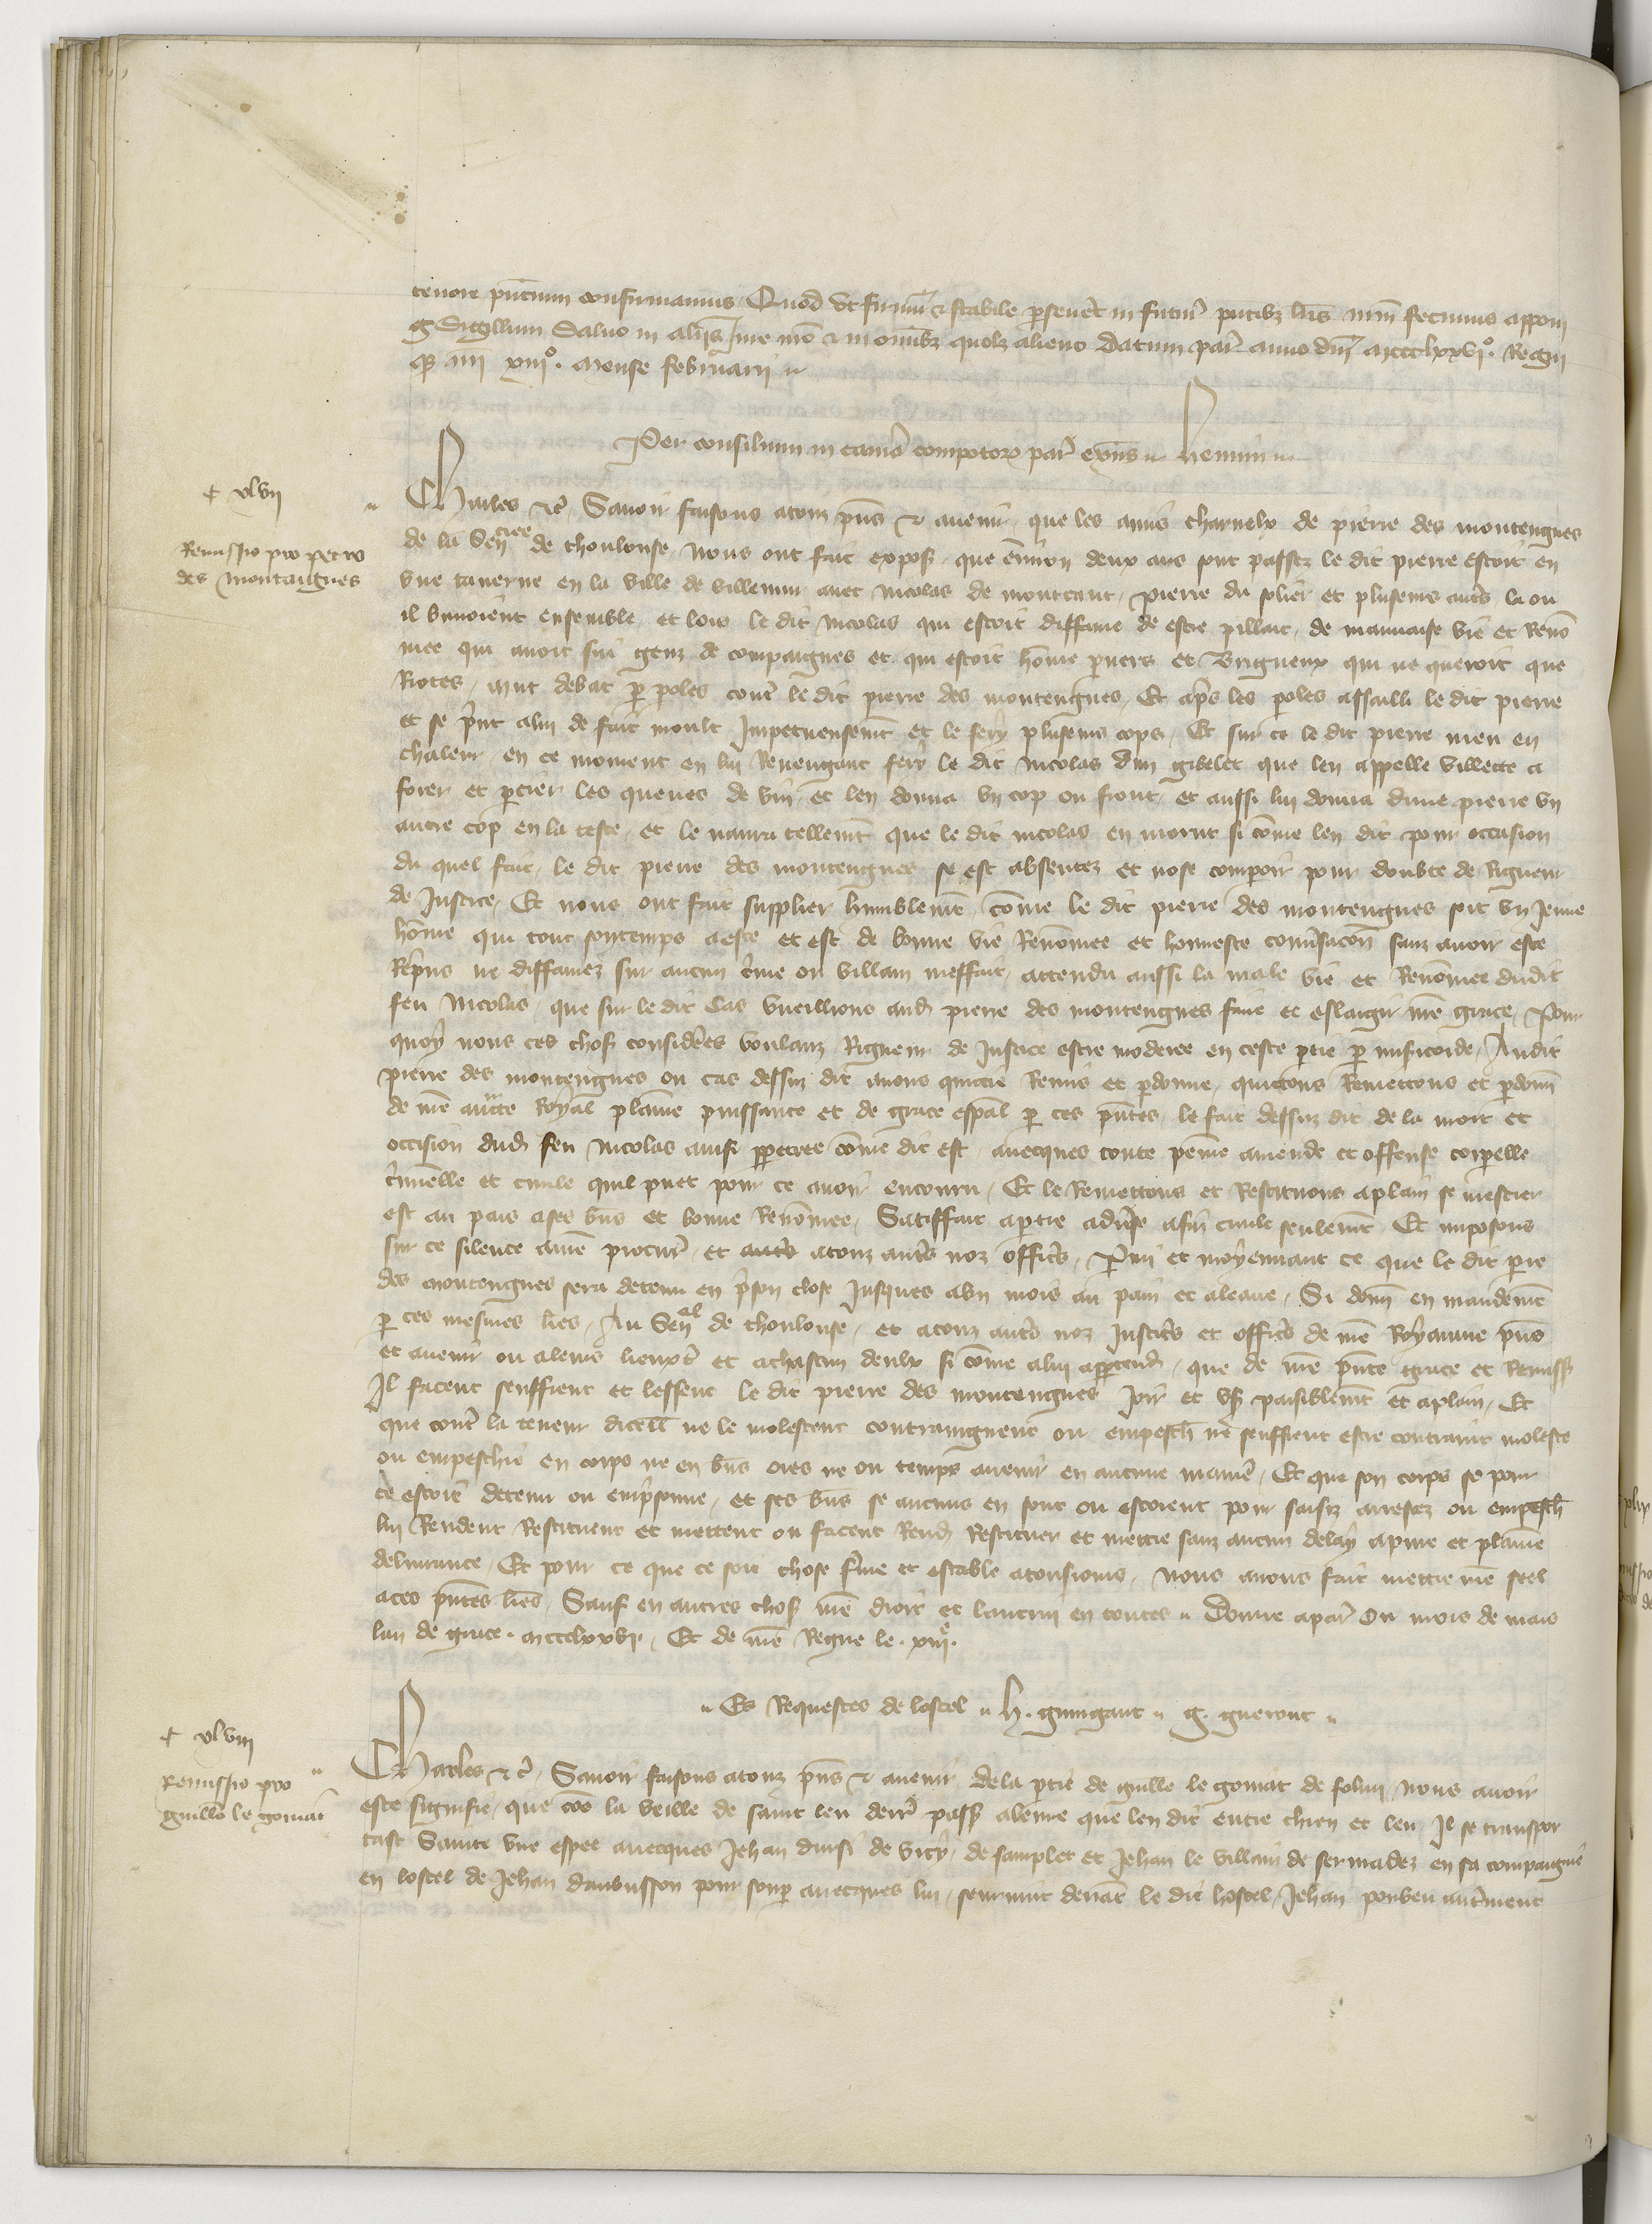 tenore pñcium confirmamus Quod ut firmũ & stabile ꝑseuet̾ in futur̾ pñtibz lr̃is nr̃m fecimus apponi
Sigillum Saluo in aliis iure nr̃o & in omĩbz quolz alieno Datum par̾ anno dñi mccclxxviº. Regni
ꝙ nr̃i xiiiº. mense februarii
Per consilium in cam̾a compotoꝝ par̾ exñs hemim
+ xlvii
Remissio pro petro
des montaignes
Charles &c̾ Sauoir faisons atouz pñs & auenir que les amis charnelx de pierre des montengnes
de la Sen̾cie de thoulouse nous ont fait exposer que enuiron deux ans sont passez le dit pierre estoit en
vne tauerne en la ville de villemur auec Nicolas de montcaut pierre du solier et plusieurs autr̾s la ou
il buuoient ensemble et lors le dit Nicolas qui estoit diffame de estre pillart de mauuaise vie et Renõ
mee qui auoit sui genz de compaignes et qui estoit hõme peruers et Brigueux qui ne queroit que
Riotes mut debat ꝑ ꝑoles contr̾ le dit pierre des montengnes Et apr̃s les ꝑoles assailli le dit pierre
et se p̾nt alui de fait moult Impetueusemt̃ et le fery plusieurs cops Et sur ce le dit pierre meu en
chaleur en ce moment en lui Reuengant fery le dit Nicolas dun gibelet que len appelle villette a
forer et ꝑcier les queues de vin et len donna vn cop ou front et aussi lui donna dune pierre vn
autre cop en la teste et le naura tellemt̃ que le dit nicolas en morut si cõme len dit pour occasion
du quel fait le dit pierre des montengnes se est absentez et nose comparoir pour doubte de Rigueur
de Justice Et nous ont fait supplier humblemt̃ cõme le dit pierre des montengnes soit vn Jeune
hõme qui tout son temps a este et est de bonne vie Renõmee et honneste conũsacõn sanz auoir este
Rep̾ns ne diffamez sur aucun c̾me ou villain meffait attendu aussi la male vie et Renõmee dudit
feu Nicolas que sur le dit Cas vueillions aud pierre des montengnes faire et eslargir nr̃e grace Pour
quoy nous ces chos̾ consider̾es voulanz Rigueur de Justice estre moderee en ceste ꝑtie ꝑ mis̾icorde Audit
pierre des montengnes ou cas dessuz dit auons quittie Remis et ꝑdonne quittons Remettons et ꝑdonñ
de nr̃e auctte Royal plaine puissance et de grace esp̃al ꝑ ces pñtes le fait dessuz dit de la mort et
occision dud feu Nicolas ainsi ꝑpetree cõme dit est auecques toute peine amende et offense corporelle
c̾iminelle et ciuile quil puet pour ce auoir encouru Et le Remettons et Restituons aplain se mestier
est au pais ases biñs et bonne Renõmee Satiffait aꝑtie adũse afin ciuile seulemt̃ Et imposons
sur ce silence anr̃e procur̾ et autr̾s atouz autr̾s noz offic̾s Parmi et moyennant ce que le dit pierre
des montengnes sera detenu en p̾son close Jusques abn mois au pain et aleaue Si donñ en mandemt̃
ꝑ ces mesmes lr̃es Au Senal de thoulouse et atouz autr̾s noz Justic̾s et offic̾s de nr̃e Royaume pñs
et auenir ou aleurs lieuxt̾ et achascun deulx si cõme alui appartend̾ que de nr̃e pñte grace et Remiss̾
Il facent seuffrent et lessent le dit pierre des montengnes Joir et vs̾ paisiblemt̃ et aplain Et
que contr̾ la teneur dicelle ne le molestent contraingnent ou empeschẽt ne seuffrent estre contraint moleste
ou empeschie en corps ne en biñs ores ne ou temps auenir en aucune manier̾ Et que son corps se pour
ce estoit detenu ou emp̾sonne et ses biñs se aucuns en sont ou estoient pour saisiz arrestez ou empeschẽ
lui Rendent Restituent et mettent ou facent Rend̾ Restituer et mettre sanz aucun delay apure et plaine
deliurance Et pour ce que ce soit chose f̾me et estable atousiours Nous auons fait mettre nr̃e seel
aces pñtes lr̃es Sauf en autres chos̾ nr̃e droit et lautrui en toutes Donne apar̾ Ou mois de mars
lan de grace mccclxxvi Et de nr̃e Regne le xiiie̊
Es Requestes de lostel h. guingant g. gueront
+ xlviii
Remissio pro
guill̃o le gomat̾
Charles &c̾ Sauoir faisons atouz pñs & auenir de la ꝑtie de guille le gomat de folui nous auoir
este signifie que cõe la veille de saint leu derr̾ pass̾ aleure que len dit entre chien et leu Il se transpor
tast Sainte vne espee auecques Jehan de vicy de samplet et Jehan le villain de sermadez en sa compaignie
en lostel de Jehan daubusson pour soup̾ auecques lui seurmit deuãt le dit hostel Jehan pouben autr̾ment